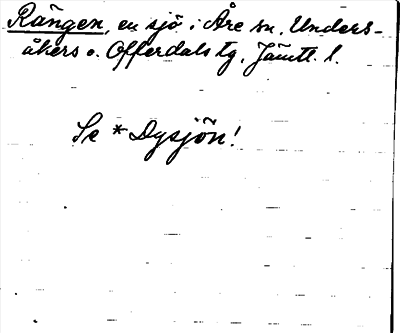 Rängen, en sjö i Åre sn, Unders-
åkers o. Offerdals tg, Jämtl. l.
Se * Dysjön!